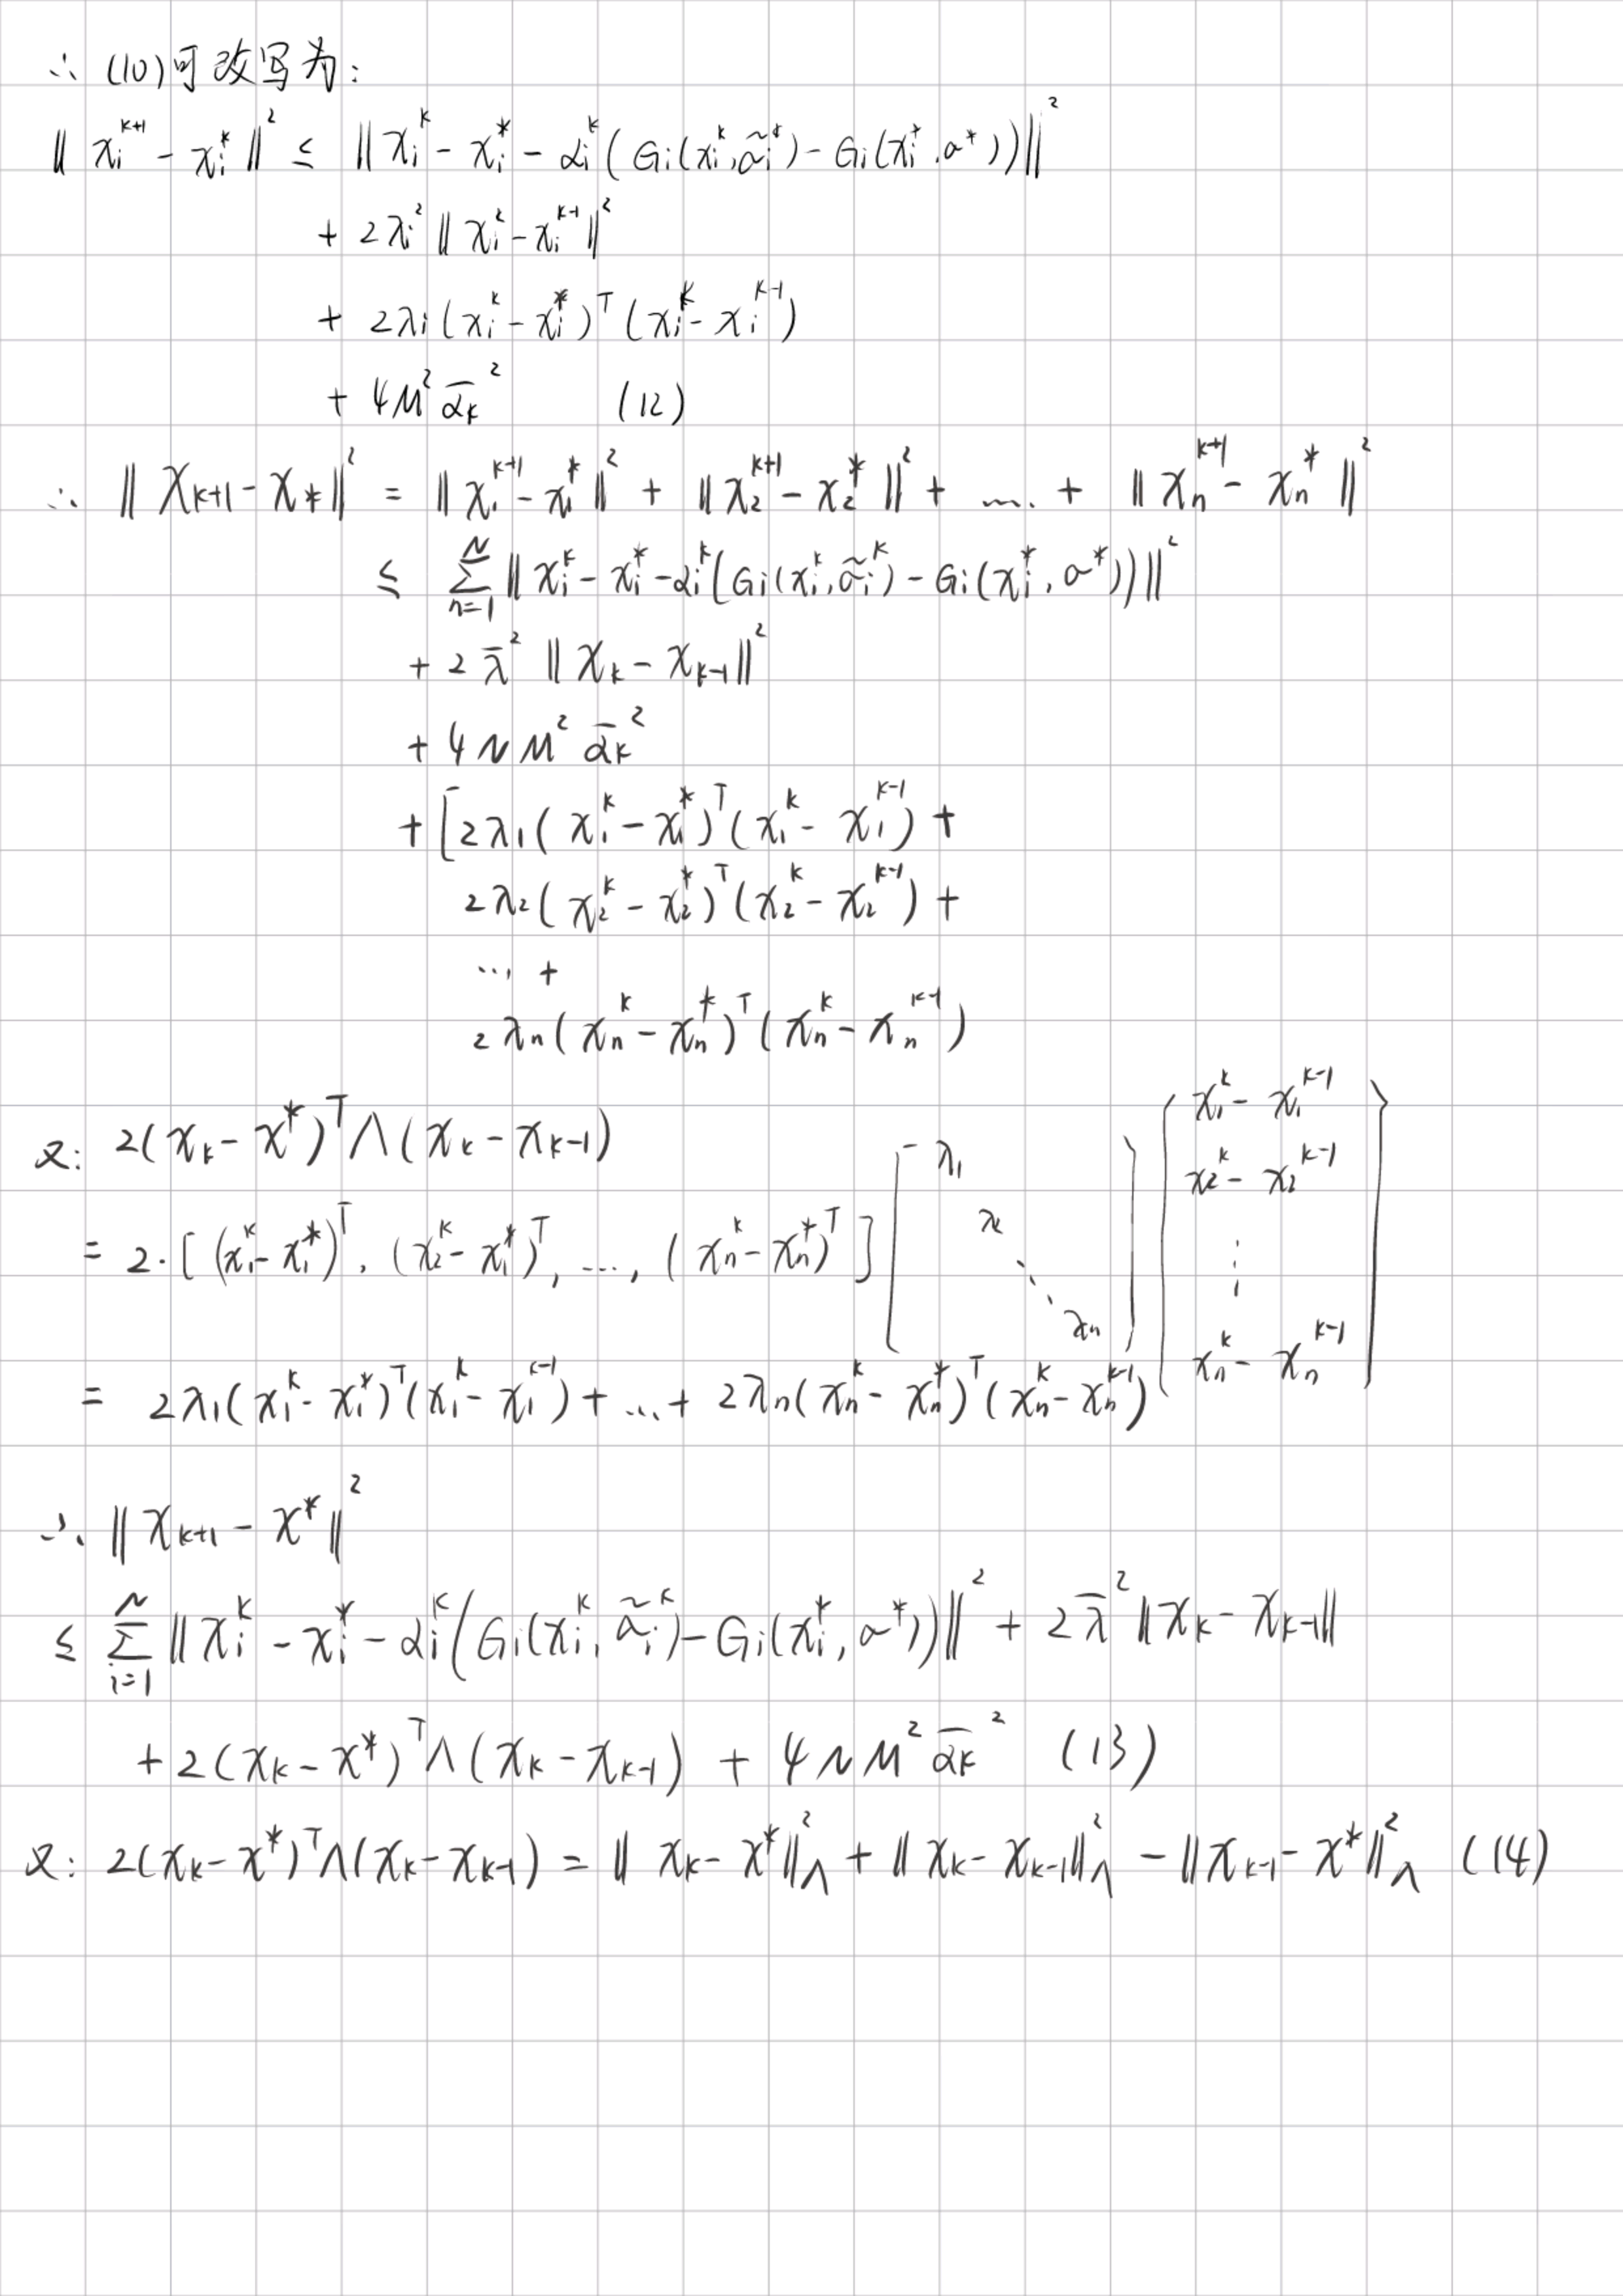 ∴ (10)可改写为:
‖x_i^{k+1} - x_i^*‖^2 ≤ ‖x_i^k - x_i^* - α_i^k(G_i(x_i^k, \tilde{σ}_i^k) - G_i(x_i^*, σ^*))‖^2
+ 2λ_i^2 ‖x_i^2 - x_i^{k-1}‖^2
+ 2λ_i(x_i^k - x_i^*)^T(x_i^k - x_i^{k-1})
+ 4M^2 \bar{α}_k^2 (12)
∴ ‖x_{k+1} - x_*‖^2 = ‖x_1^{k+1} - x_1^*‖^2 + ‖x_2^{k+1} - x_2^*‖^2 + .... + ‖x_n^{k+1} - x_n^*‖^2
≤ \sum_{n=1}^{N} ‖x_i^k - x_i^* - α_i^k(G_i(x_i^k, \tilde{σ}_i^k) - G_i(x_i^*, σ^*))‖^2
+ 2\bar{λ}^2 ‖x_k - x_{k-1}‖^2
+ 4NM^2 \bar{α}_k^2
+ [2λ_1(x_1^k - x_1^*)^T(x_1^k - x_1^{k-1}) +
2λ_2(x_2^k - x_2^*)^T(x_2^k - x_2^{k-1}) +
... +
2λ_n(x_n^k - x_n^*)^T(x_n^k - x_n^{k-1})
又: 2(x_k - x^*)^T Λ(x_k - x_{k-1})
= 2·[(x_1^k - x_1^*)^T, (x_2^k - x_1^*)^T, ..., (x_n^k - x_n^*)^T] [λ_1 λ_2 ⋱ λ_n] [x_1^k - x_1^{k-1} x_2^k - x_2^{k-1} ⋮ x_n^k - x_n^{k-1}]
= 2λ_1(x_1^k - x_1^*)^T(x_1^k - x_1^{k-1}) + ... + 2λ_n(x_n^k - x_n^*)^T(x_n^k - x_n^{k-1})
∴ ‖x_{k+1} - x^*‖^2
≤ \sum_{i=1}^{N} ‖x_i^k - x_i^* - α_i^k(G_i(x_i^k, \tilde{σ}_i^k) - G_i(x_i^*, σ^*))‖^2 + 2\bar{λ}^2 ‖x_k - x_{k-1}‖
+ 2(x_k - x^*)^T Λ(x_k - x_{k-1}) + 4NM^2 \bar{α}_k^2 (13)
又: 2(x_k - x^*)^T Λ(x_k - x_{k-1}) = ‖x_k - x^*‖_Λ^2 + ‖x_k - x_{k-1}‖_Λ^2 - ‖x_{k-1} - x^*‖_Λ^2 (14)